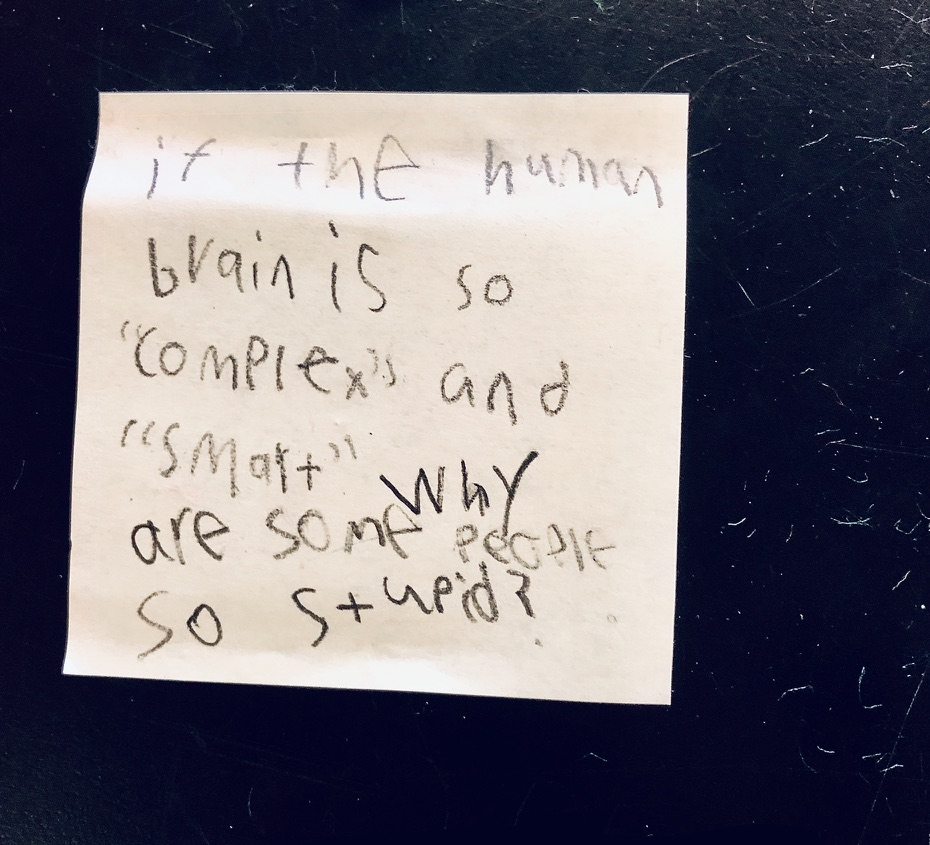 if the human
brain is so
"complex" and
"smart" why
are some people
so stupid?